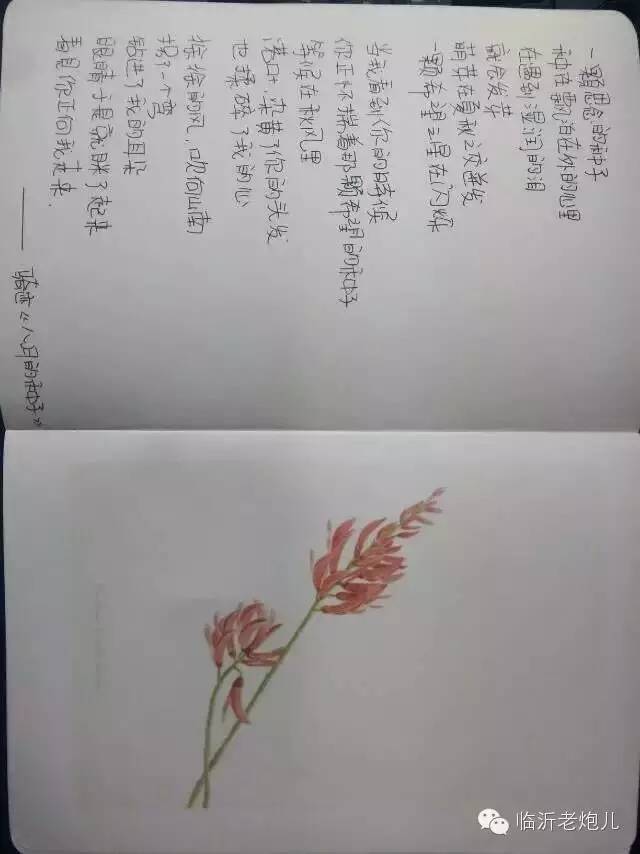 一颗思念的种子
种在飘泊在外的心里
在遇到湿润的泪
就会发芽
萌芽在夏秋之交迸发
一颗希望之星在闪烁
当我看到你的时候
你正怀揣着那颗希望的种子
等候在秋风里
落叶,染黄了你的头发
也揉碎了我的心
徐徐的风,吹向山南
拐了一个弯
钻进了我的耳朵
眼睛于是就眯了起来
看见你正向我走来.
——《八月的种子》
临沂老炮儿